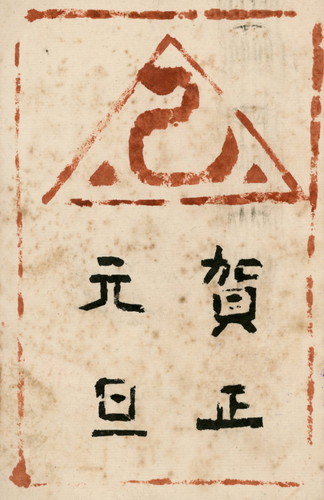 巳
賀正
元旦